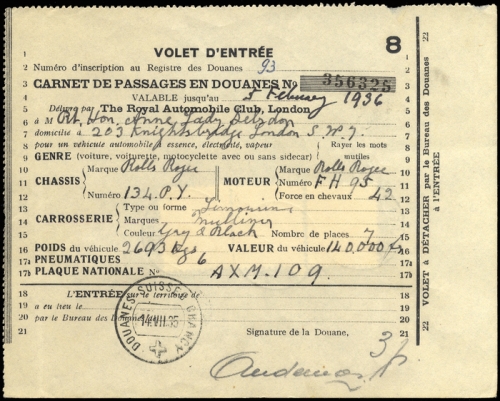 1 VOLET D'ENTRÉE 8
2 Numéro d'inscription au Registre des Douanes 93
3 CARNET DE PASSAGES EN DOUANES No 356325
4 VALABLE jusqu'au 5 February 1936
5 Délivré par The Royal Automobile Club, London
6 à M Rt. Hon. Anne Lady
7 domicilié à 203 Knightsbridge London S.W.7.
8 pour un véhicule automobile à essence, électricité, vapeur Rayer les mots
9 GENRE (voiture, voiturette, motocyclette avec ou sans sidecar) inutiles
10 Marque Rolls Royce Marque Rolls Royce
11 CHASSIS MOTEUR Numéro FH 95
12 Numéro 134.P.Y. Force en chevaux 42
13 Type ou forme Limousine
14 CARROSSERIE Marques Mulliner
15 Couleur Grey & Black Nombre de places 7
16 POIDS du véhicule 2693 Kgs VALEUR du véhicule 140.000 f
17a PNEUMATIQUES 6
17b PLAQUE NATIONALE No AXM.109
18 L'ENTRÉE sur le territoire de
19 a eu lieu le
20 par le Bureau des Douanes d
21 Signature de la Douane,
DOUANES SUISSES CHANCY
14.VII.35
22 VOLET A DÉTACHER par le Bureau des Douanes 22
à l'ENTRÉE